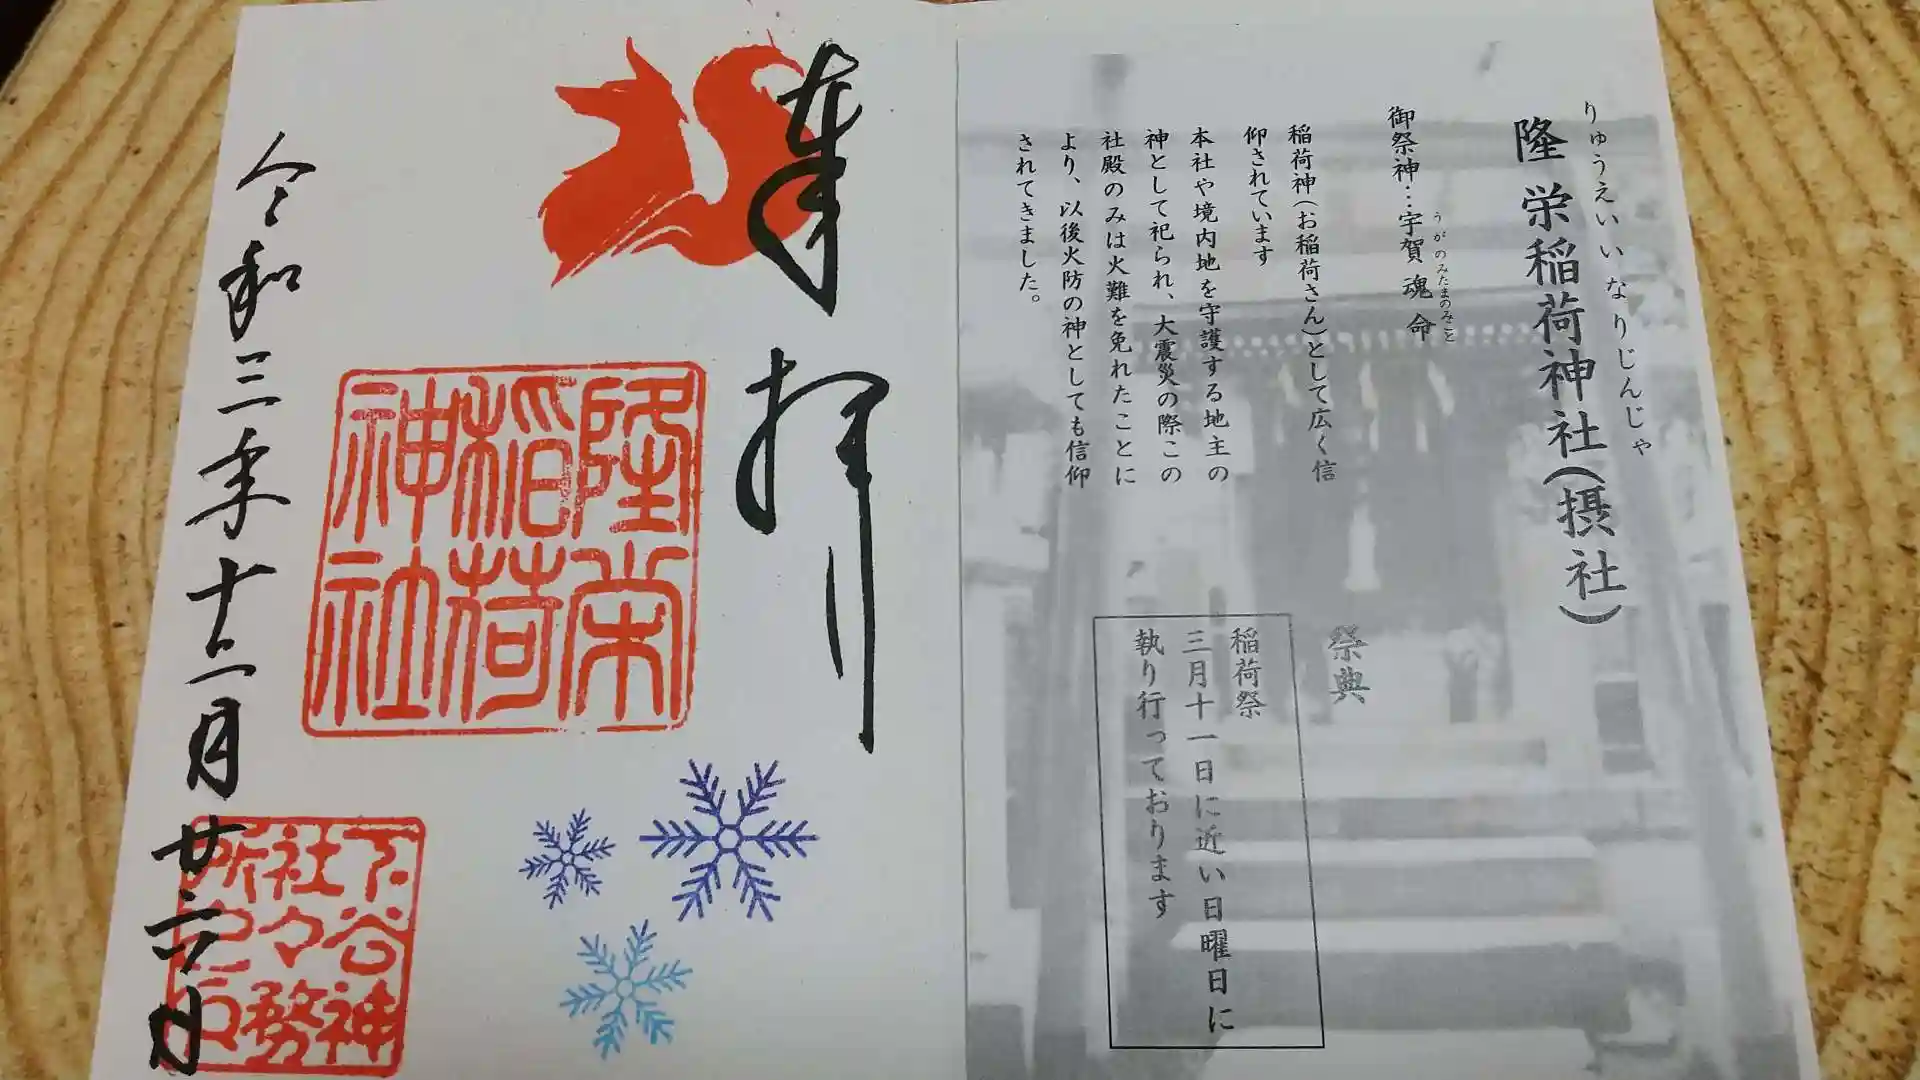 りゅうえいいなりじんじゃ
隆栄稲荷神社(摂社)
うがのみたまのみこと
御祭神…宇賀魂命
稲荷神(お稲荷さん)として広く信
仰されています
本社や境内地を守護する地主の
神として祀られ、大震災の際この
社殿のみは火難を免れたことに
より、以後火防の神としても信仰
されてきました。
祭典
稲荷祭
三月十一日に近い日曜日に
執り行っております
奉拝
隆栄
稲荷
神社
令和三年十二月廿六日
下谷神
社々務
所之印